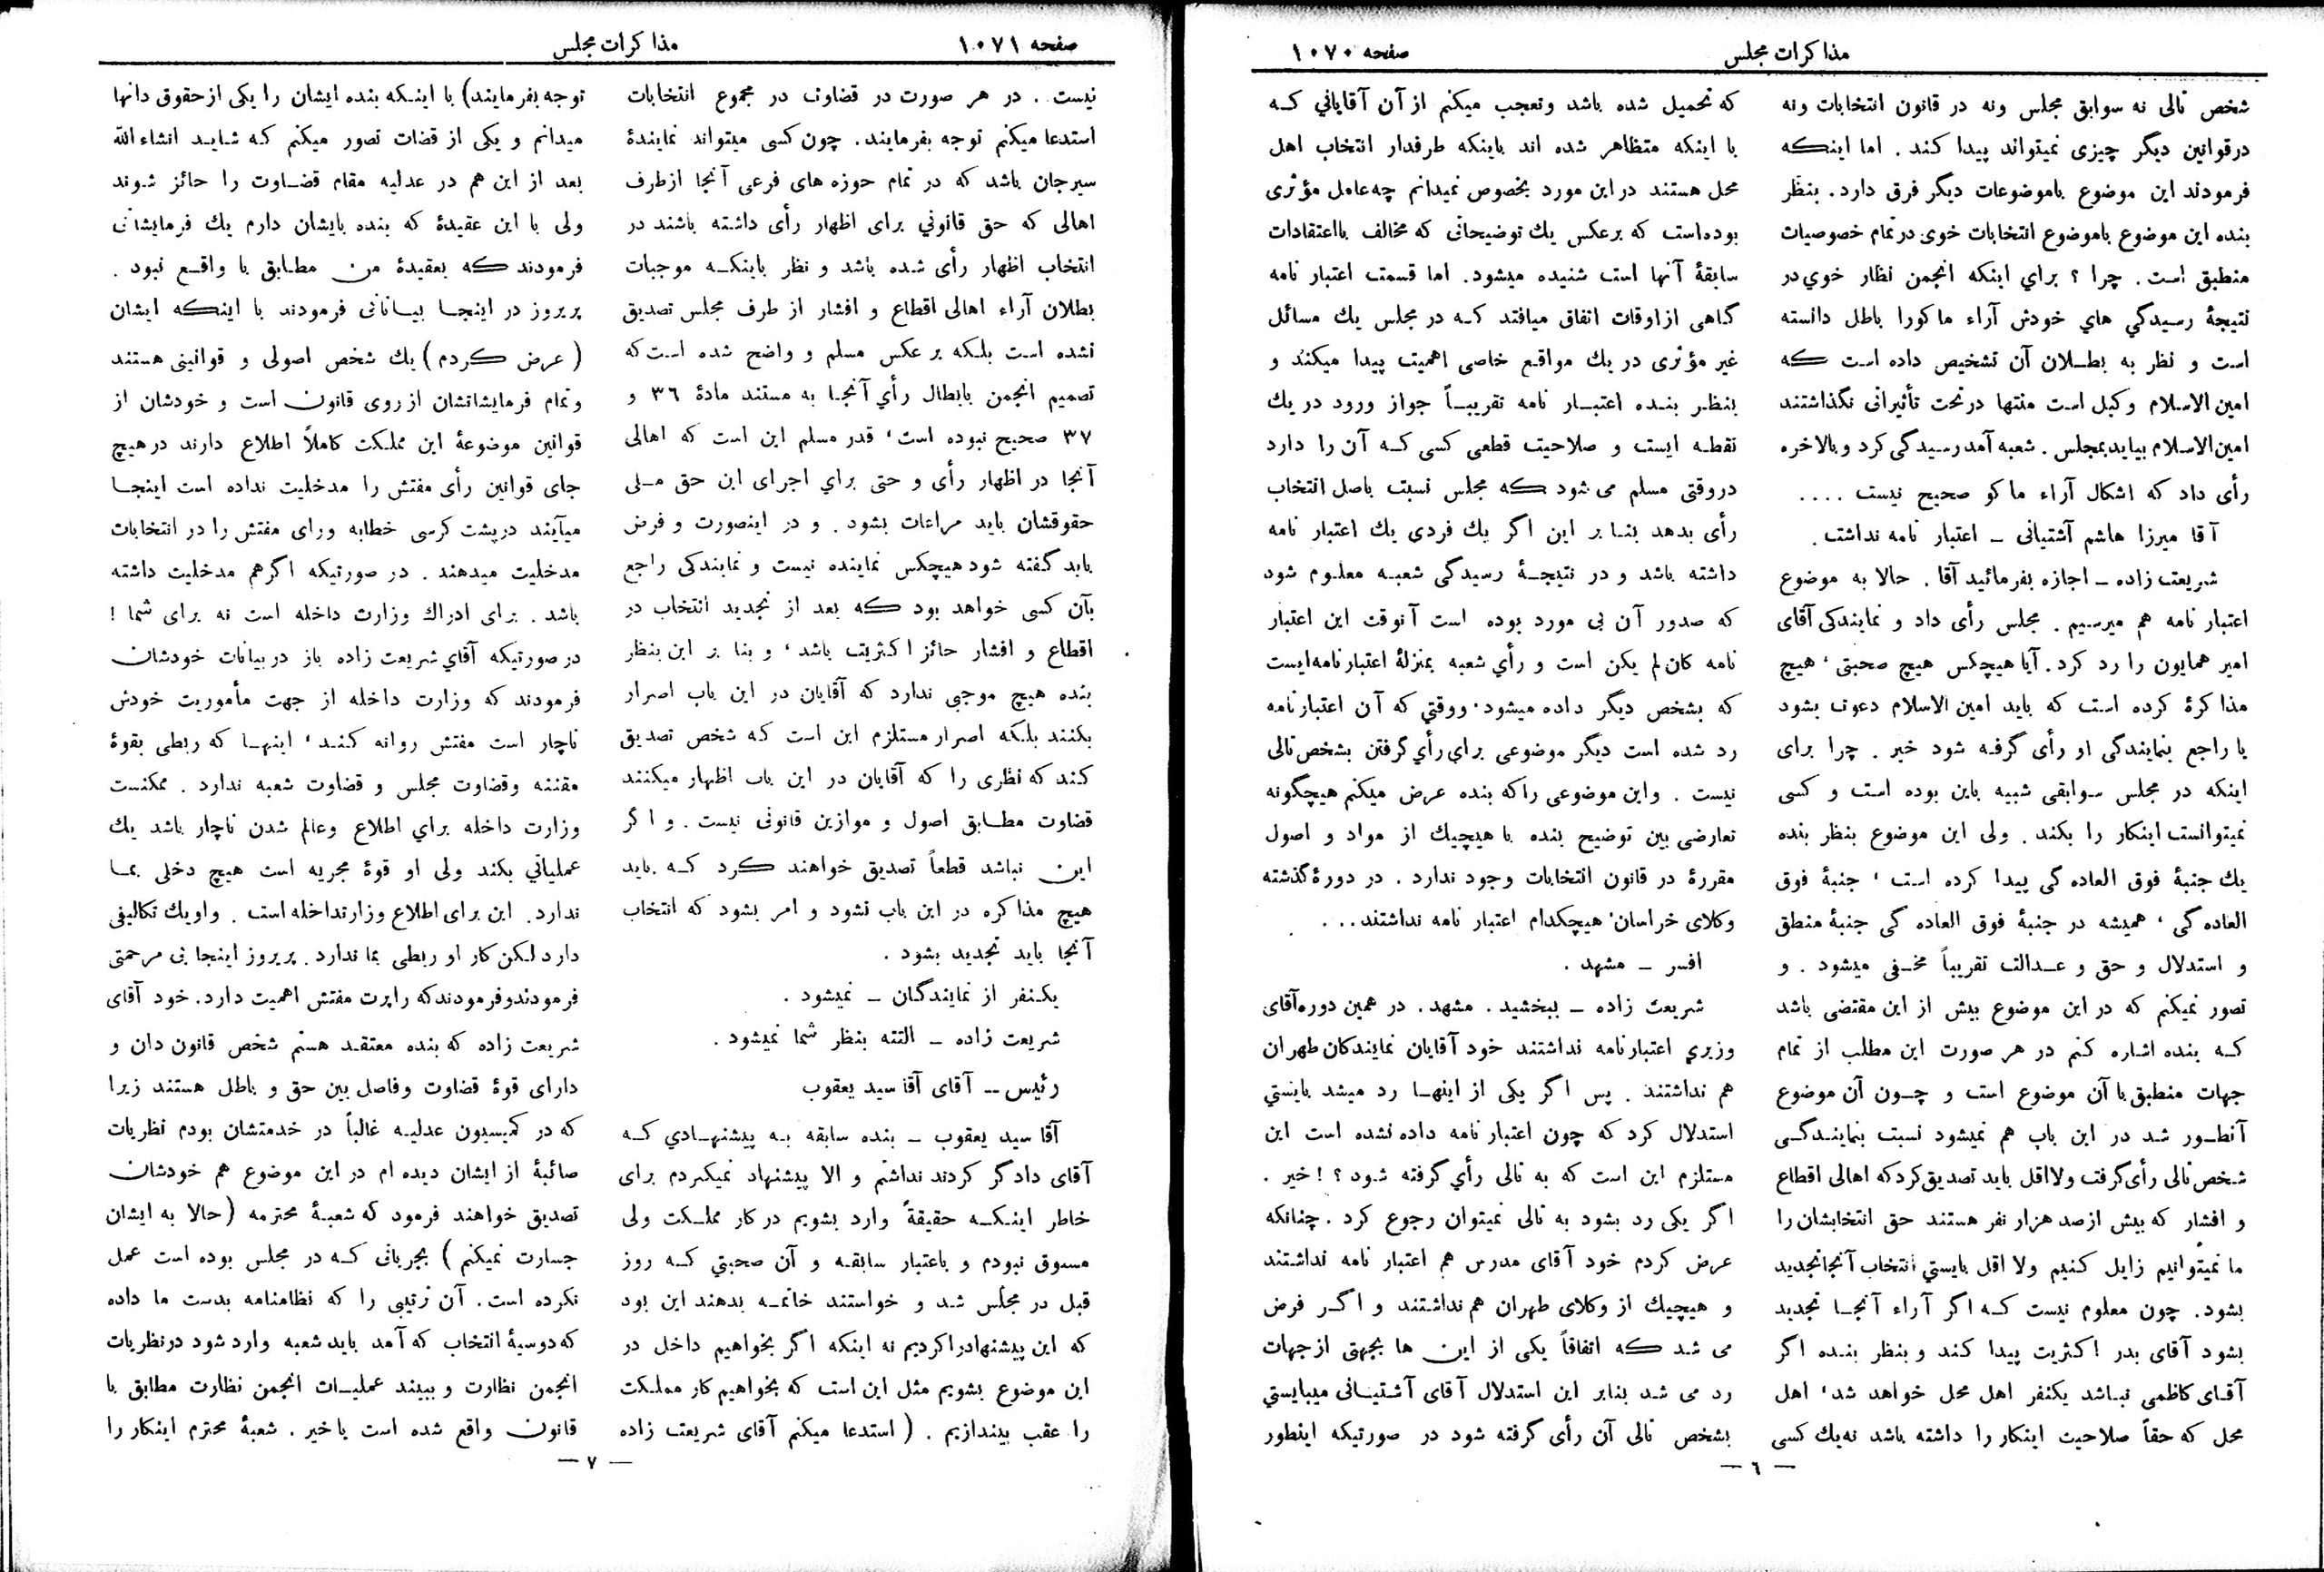 مذاکرات مجلس
صفحه ۱۰۷۰
شخص تالی نه سوابق مجلس ونه در قانون انتخابات ونه
درقوانین دیگر چیزی نمیتواند پیدا کند . اما اینکه
فرمودند این موضوع باموضوعات دیگر فرق دارد. بنظر
بنده این موضوع باموضوع انتخابات خوی درتمام خصوصیات
منطبق است . چرا ؟ براي اینکه انجمن نظار خوي در
نتیجهٔ رسیدگي هاي خودش آراء ماکورا باطل دانسته
است و نظر به بطلان آن تشخیص داده است که
امین الاسلام وکیل است منتها درتحت تأثیراتی نگذاشتند
امین الاسلام بیاید بمجلس . شعبه آمد رسیدگی کرد و بالاخره
رأی داد که اشکال آراء ماکو صحیح نیست ....
آقا میرزا هاشم آشتیانی ـ اعتبار نامه نداشت .
شریعت زاده ـ اجازه بفرمائید آقا . حالا به موضوع
اعتبار نامه هم میرسیم . مجلس رأی داد و نمایندگی آقای
امیر همایون را رد کرد. آیا هیچکس هیچ صحبتی ، هیچ
مذاکرهٔ کرده است که باید امین الاسلام دعوت بشود
یا راجع بنمایندگی او رأی گرفه شود خیر . چرا برای
اینکه در مجلس سوابقی شبیه باین بوده است و کسی
نمیتوانست اینکار را بکند . ولی این موضوع بنظر بنده
یك جنبهٔ فوق العاده گی پیدا کرده است ، جنبهٔ فوق
العاده گی ، همیشه در جنبهٔ فوق العاده گی جنبهٔ منطق
و استدلال و حق و عدالت تقریباً مخفی میشود . و
تصور نمیکنم که در این موضوع بیش از این مقتضی باشد
که بنده اشاره کنم در هر صورت این مطلب از تمام
جهات منطبق با آن موضوع است و چون آن موضوع
آنطور شد در این باب هم نمیشود نسبت بنمایندگی
شخص تالی رأی گرفت ولااقل باید تصدیق کرد که اهالی اقطاع
و افشار که بیش از صد هزار نفر هستند حق انتخابشان را
ما نمیتوانیم زایل کنیم ولا اقل بایستي انتخاب آنجا تجدید
بشود. چون معلوم نیست که اگر آراء آنجا تجدید
بشود آقای بدر اکثریت پیدا کند و بنظر بنده اگر
آقای کاظمی نباشد یکنفر اهل محل خواهد شد ، اهل
محل که حقاً صلاحیت اینکار را داشته باشد نه یك کسی
که تحمیل شده باشد وتعجب میکنم از آن آقایاني که
با اینکه متظاهر شده اند باینکه طرفدار انتخاب اهل
محل هستند در این مورد بخصوص نمیدانم چه عامل مؤثری
بوده است که برعکس یك توضیحاتی که مخالف بااعتقادات
سابقهٔ آنها است شنیده میشود. اما قسمت اعتبار نامه
گاهی از اوقات اتفاق میافتد که در مجلس یك مسائل
غیر مؤثری در یك مواقع خاصی اهمیت پیدا میکند و
بنظر بنده اعتبار نامه تقریباً جواز ورود در یك
نقطه ایست و صلاحیت قطعی کسی که آن را دارد
دروقتی مسلم می شود که مجلس نسبت باصل انتخاب
رأی بدهد بنا بر این اگر یك فردی یك اعتبار نامه
داشته باشد و در نتیجهٔ رسیدگی شعبه معلوم شود
که صدور آن بی مورد بوده است آنوقت این اعتبار
نامه کان لم یکن است و رأي شعبه بمنزلهٔ اعتبار نامه ایست
که بشخص دیگر داده میشود . ووقتي که آن اعتبارنامه
رد شده است دیگر موضوعی براي رأي گرفتن بشخص تالی
نیست . واین موضوعی راکه بنده عرض میکنم هیچگونه
تعارضی بین توضیح بنده با هیچیك از مواد و اصول
مقررهٔ در قانون انتخابات وجود ندارد . در دورهٔ گذشته
وکلای خراسان هیچکدام اعتبار نامه نداشتند...
افسر ـ مشهد .
شریعت زاده ـ ببخشید . مشهد . در همین دوره آقای
وزیري اعتبارنامه نداشتند خود آقایان نمایندکان طهران
هم نداشتند . پس اگر یکی از اینها رد میشد بایستي
استدلال کرد که چون اعتبار نامه داده نشده است این
مستلزم این است که به تالی رأي گرفته شود ؟ ! خیر .
اگر یکی رد بشود به تالی نمیتوان رجوع کرد . چنانکه
عرض کردم خود آقای مدرس هم اعتبار نامه نداشتند
و هیچیك از وکلای طهران هم نداشتند و اگر فرض
می شد که اتفاقاً یکی از این ها بجهتی از جهات
رد می شد بنابر این استدلال آقای آشتیانی میبایستي
بشخص تالی آن رأی گرفته شود در صورتیکه اینطور
ـ ٦ ـ
صفحه ۱۰۷۱
مذاکرات مجلس
نیست . در هر صورت در قضاوت در مجموع انتخابات
استدعا میکنم توجه بفرمایند. چون کسی میتواند نمایندهٔ
سیرجان باشد که در تمام حوزه های فرعی آنجا ازطرف
اهالی که حق قانوني برای اظهار رأی داشته باشند در
انتخاب اظهار رأی شده باشد و نظر باینکه موجبات
بطلان آراء اهالی اقطاع و افشار از طرف مجلس تصدیق
نشده است بلکه بر عکس مسلم و واضح شده است که
تصمیم انجمن بابطال رأي آنجا به مستند مادهٔ ۳٦ و
۳۷ صحیح نبوده است ، قدر مسلم این است که اهالی
آنجا در اظهار رأی و حتی براي اجرای این حق ملی
حقوقشان باید مراعات بشود . و در اینصورت و فرض
باید گفته شود هیچکس نماینده نیست و نمایندگی راجع
بآن کسی خواهد بود که بعد از تجدید انتخاب در
اقطاع و افشار حائز اکثریت باشد ، و بنا بر این بنظر
بنده هیچ موجبی ندارد که آقایان در این باب اصرار
بکنند بلکه اصرار مستلزم این است که شخص تصدیق
کند که نظری را که آقایان در این باب اظهار میکنند
قضاوت مطابق اصول و موازین قانونی نیست . و اگر
این نباشد قطعاً تصدیق خواهند کرد که باید
هیچ مذاکره در این باب نشود و امر بشود که انتخاب
آنجا باید تجدید بشود .
یکنفر از نمایندگان ـ نمیشود .
شریعت زاده ـ التته بنظر شما نمیشود .
رئیس ـ آقای آقا سید یعقوب
آقا سید یعقوب ـ بنده سابقه به پیشنهادي که
آقای دادگر کردند نداشتم و الا پیشنهاد نمیکردم برای
خاطر اینکه حقیقةً وارد بشویم در کار مملکت ولی
مسبوق نبودم و باعتبار سابقه و آن صحبتي که روز
قبل در مجلس شد و خواستند خاتمه بدهند این بود
که این پیشنهادراکردیم نه اینکه اگر بخواهیم داخل در
این موضوع بشویم مثل این است که بخواهیم کار مملکت
را عقب بیندازیم . ( استدعا میکنم آقای شریعت زاده
توجه بفرمایند) با اینکه بنده ایشان را یکی از حقوق دانها
میدانم و یکی از قضات تصور میکنم که شاید انشاء الله
بعد از این هم در عدلیه مقام قضاوت را حائز شوند
ولی با این عقیدهٔ که بنده بایشان دارم یك فرمایشاتی
فرمودند که بعقیدهٔ من مطابق با واقع نبود .
پریروز در اینجا بیاناتی فرمودند با اینکه ایشان
( عرض کردم ) یك شخص اصولی و قوانینی هستند
وتمام فرمایشاتشان از روی قانون است و خودشان از
قوانین موضوعهٔ این مملکت کاملاً اطلاع دارند در هیچ
جای قوانین رأی مفتش را مدخلیت نداده است اینجا
میآیند در پشت کرسی خطابه ورای مفتش را در انتخابات
مدخلیت میدهند . در صورتیکه اگرهم مدخلیت داشته
باشد . برای ادراك وزارت داخله است نه برای شما !
در صورتیکه آقاي شریعت زاده باز در بیانات خودشان
فرمودند که وزارت داخله از جهت مأموریت خودش
ناچار است مفتش روانه کند ، اینها که ربطی بقوهٔ
مقننه وقضاوت مجلس و قضاوت شعبه ندارد . ممکنست
وزارت داخله براي اطلاع وعالم شدن ناچار باشد یك
عملیاتي بکند ولی او قوهٔ مجریه است هیچ دخلی بما
ندارد . این برای اطلاع وزارتداخله است . واویك تکالیفی
دارد لکن کار او ربطی بما ندارد . پریروز اینجا بی مرحمتی
فرمودندوفرمودندکه راپرت مفتش اهمیت دارد . خود آقای
شریعت زاده که بنده معتقد هستم شخص قانون دان و
دارای قوهٔ قضاوت وفاصل بین حق و باطل هستند زیرا
که در کمیسیون عدلیه غالباً در خدمتشان بودم نظریات
صائبهٔ از ایشان دیده ام در این موضوع هم خودشان
تصدیق خواهند فرمود که شعبهٔ محترمه (حالا به ایشان
جسارت نمیکنم ) بجریانی که در مجلس بوده است عمل
نکرده است . آن ترتیبی را که نظامنامه بدست ما داده
که دوسیهٔ انتخاب که آمد باید شعبه وارد شود درنظریات
انجمن نظارت و ببیند عملیات انجمن نظارت مطابق با
قانون واقع شده است یاخیر . شعبهٔ محترم اینکار را
ـ ۷ ـ